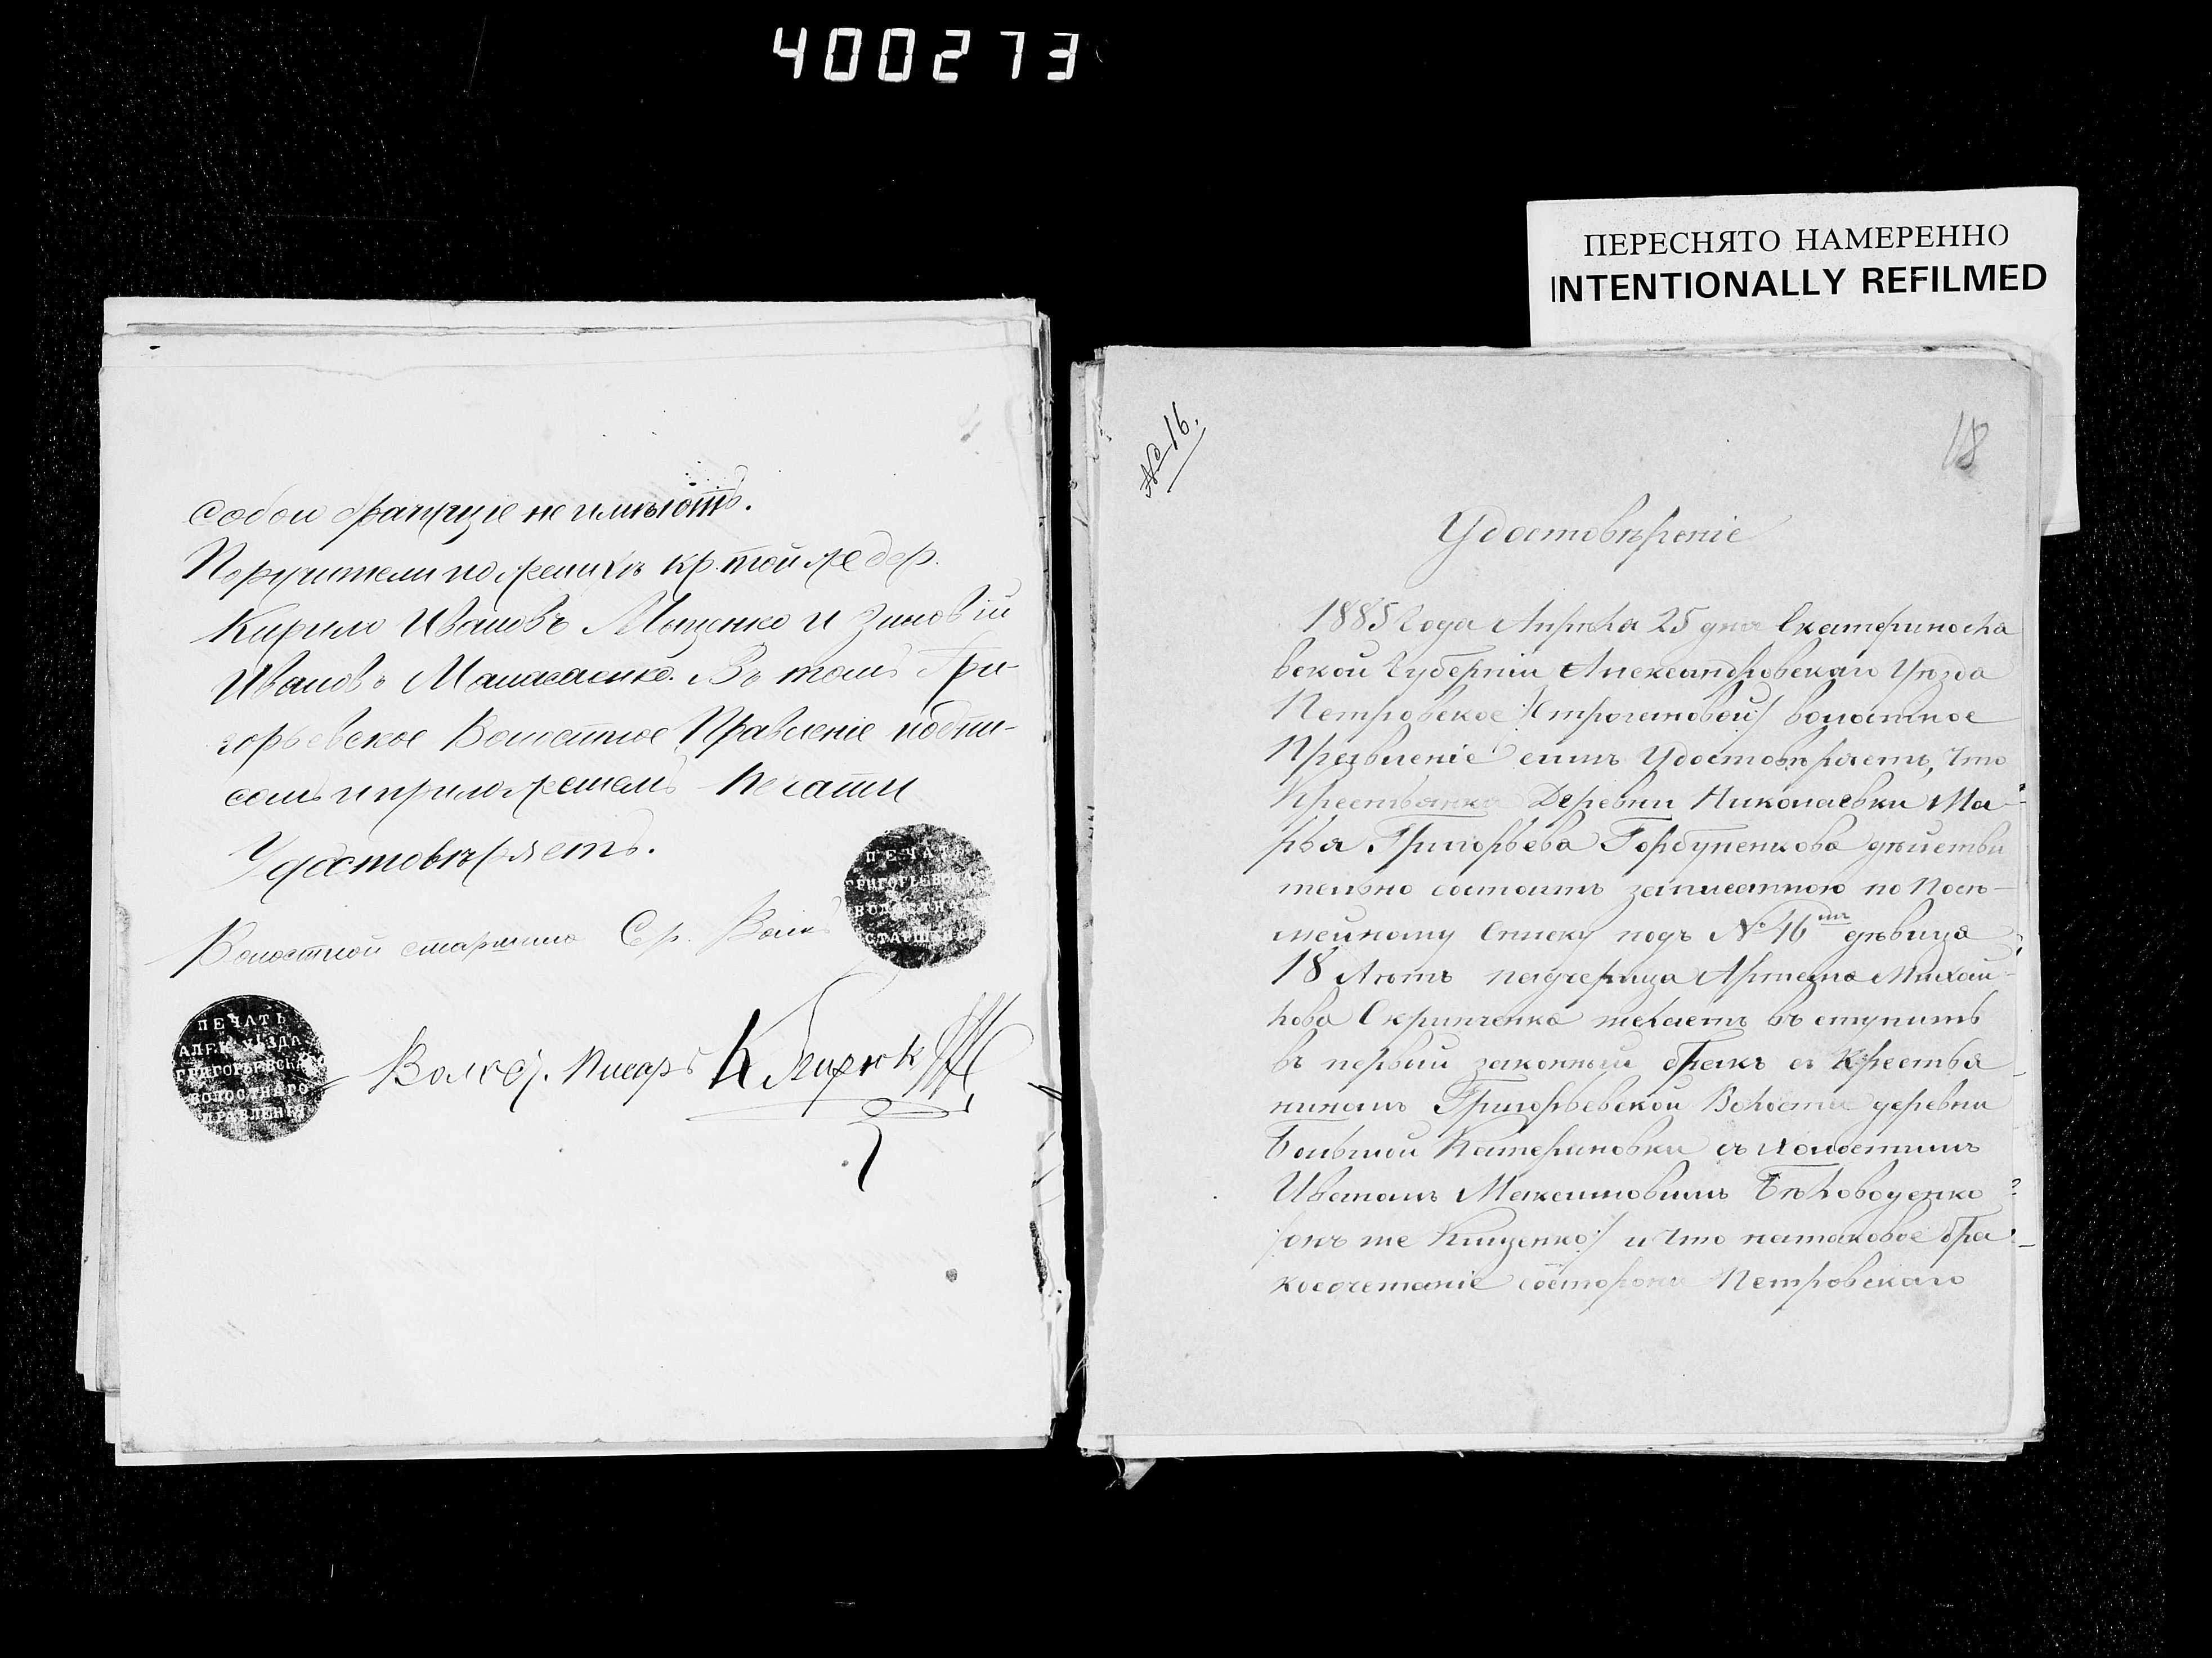 400273
ПЕРЕСНЯТО НАМЕРЕННО
INTENTIONALLY REFILMED
собои не имѣютъ.
Поручители по женихѣ кр. той же дер.
Кирило Ивановъ Мищенко и Зиновій
Ивановъ Манасенко. Въ томъ Гри-
горьевское Волостное Правленіе подпи-
сомъ и приложеніемъ печати
Удостовѣряетъ.
Волостной старшина Ср. Волкъ
Волост. Писарь К
ПЕЧАТЬ
ГРИГОРЬЕВСКАГО
ВОЛОСТНАГО
СТАРШИНЫ
ПЕЧАТЬ
АЛЕК. УѢЗДА
ГРИГОРЬЕВСКАГО
ВОЛОСТНАГО
ПРАВЛЕНІЯ
№ 16.
18
Удостовѣреніе
1885 Года Апрѣля 25 дня Екатериносла
вской Губерніи Александровскаго Уѣзда
Петровское /:Строгановой:/ волостное
Правленіе симъ Удостовѣряетъ, что
Крестьянка Деревни Николаевки Ма-
рья Григорьева Горбупенкова дѣйстви
тельно состоитъ записанною по Посѣ-
мейному Списку подъ № 16мъ дѣвица
18 Лѣтъ падчерица Артема Михай-
лова Скрипченка желаетъ въ ступить
въ первый законный бракъ съ Крестья
ниномъ Григорьевской Волости деревни
Большой Катериновки съ холостимъ
Иваномъ Максимовимъ Бѣловоденко
/:онъ же Кищенко:/ и что натаковое бра-
косочетаніе состороны Петровскаго